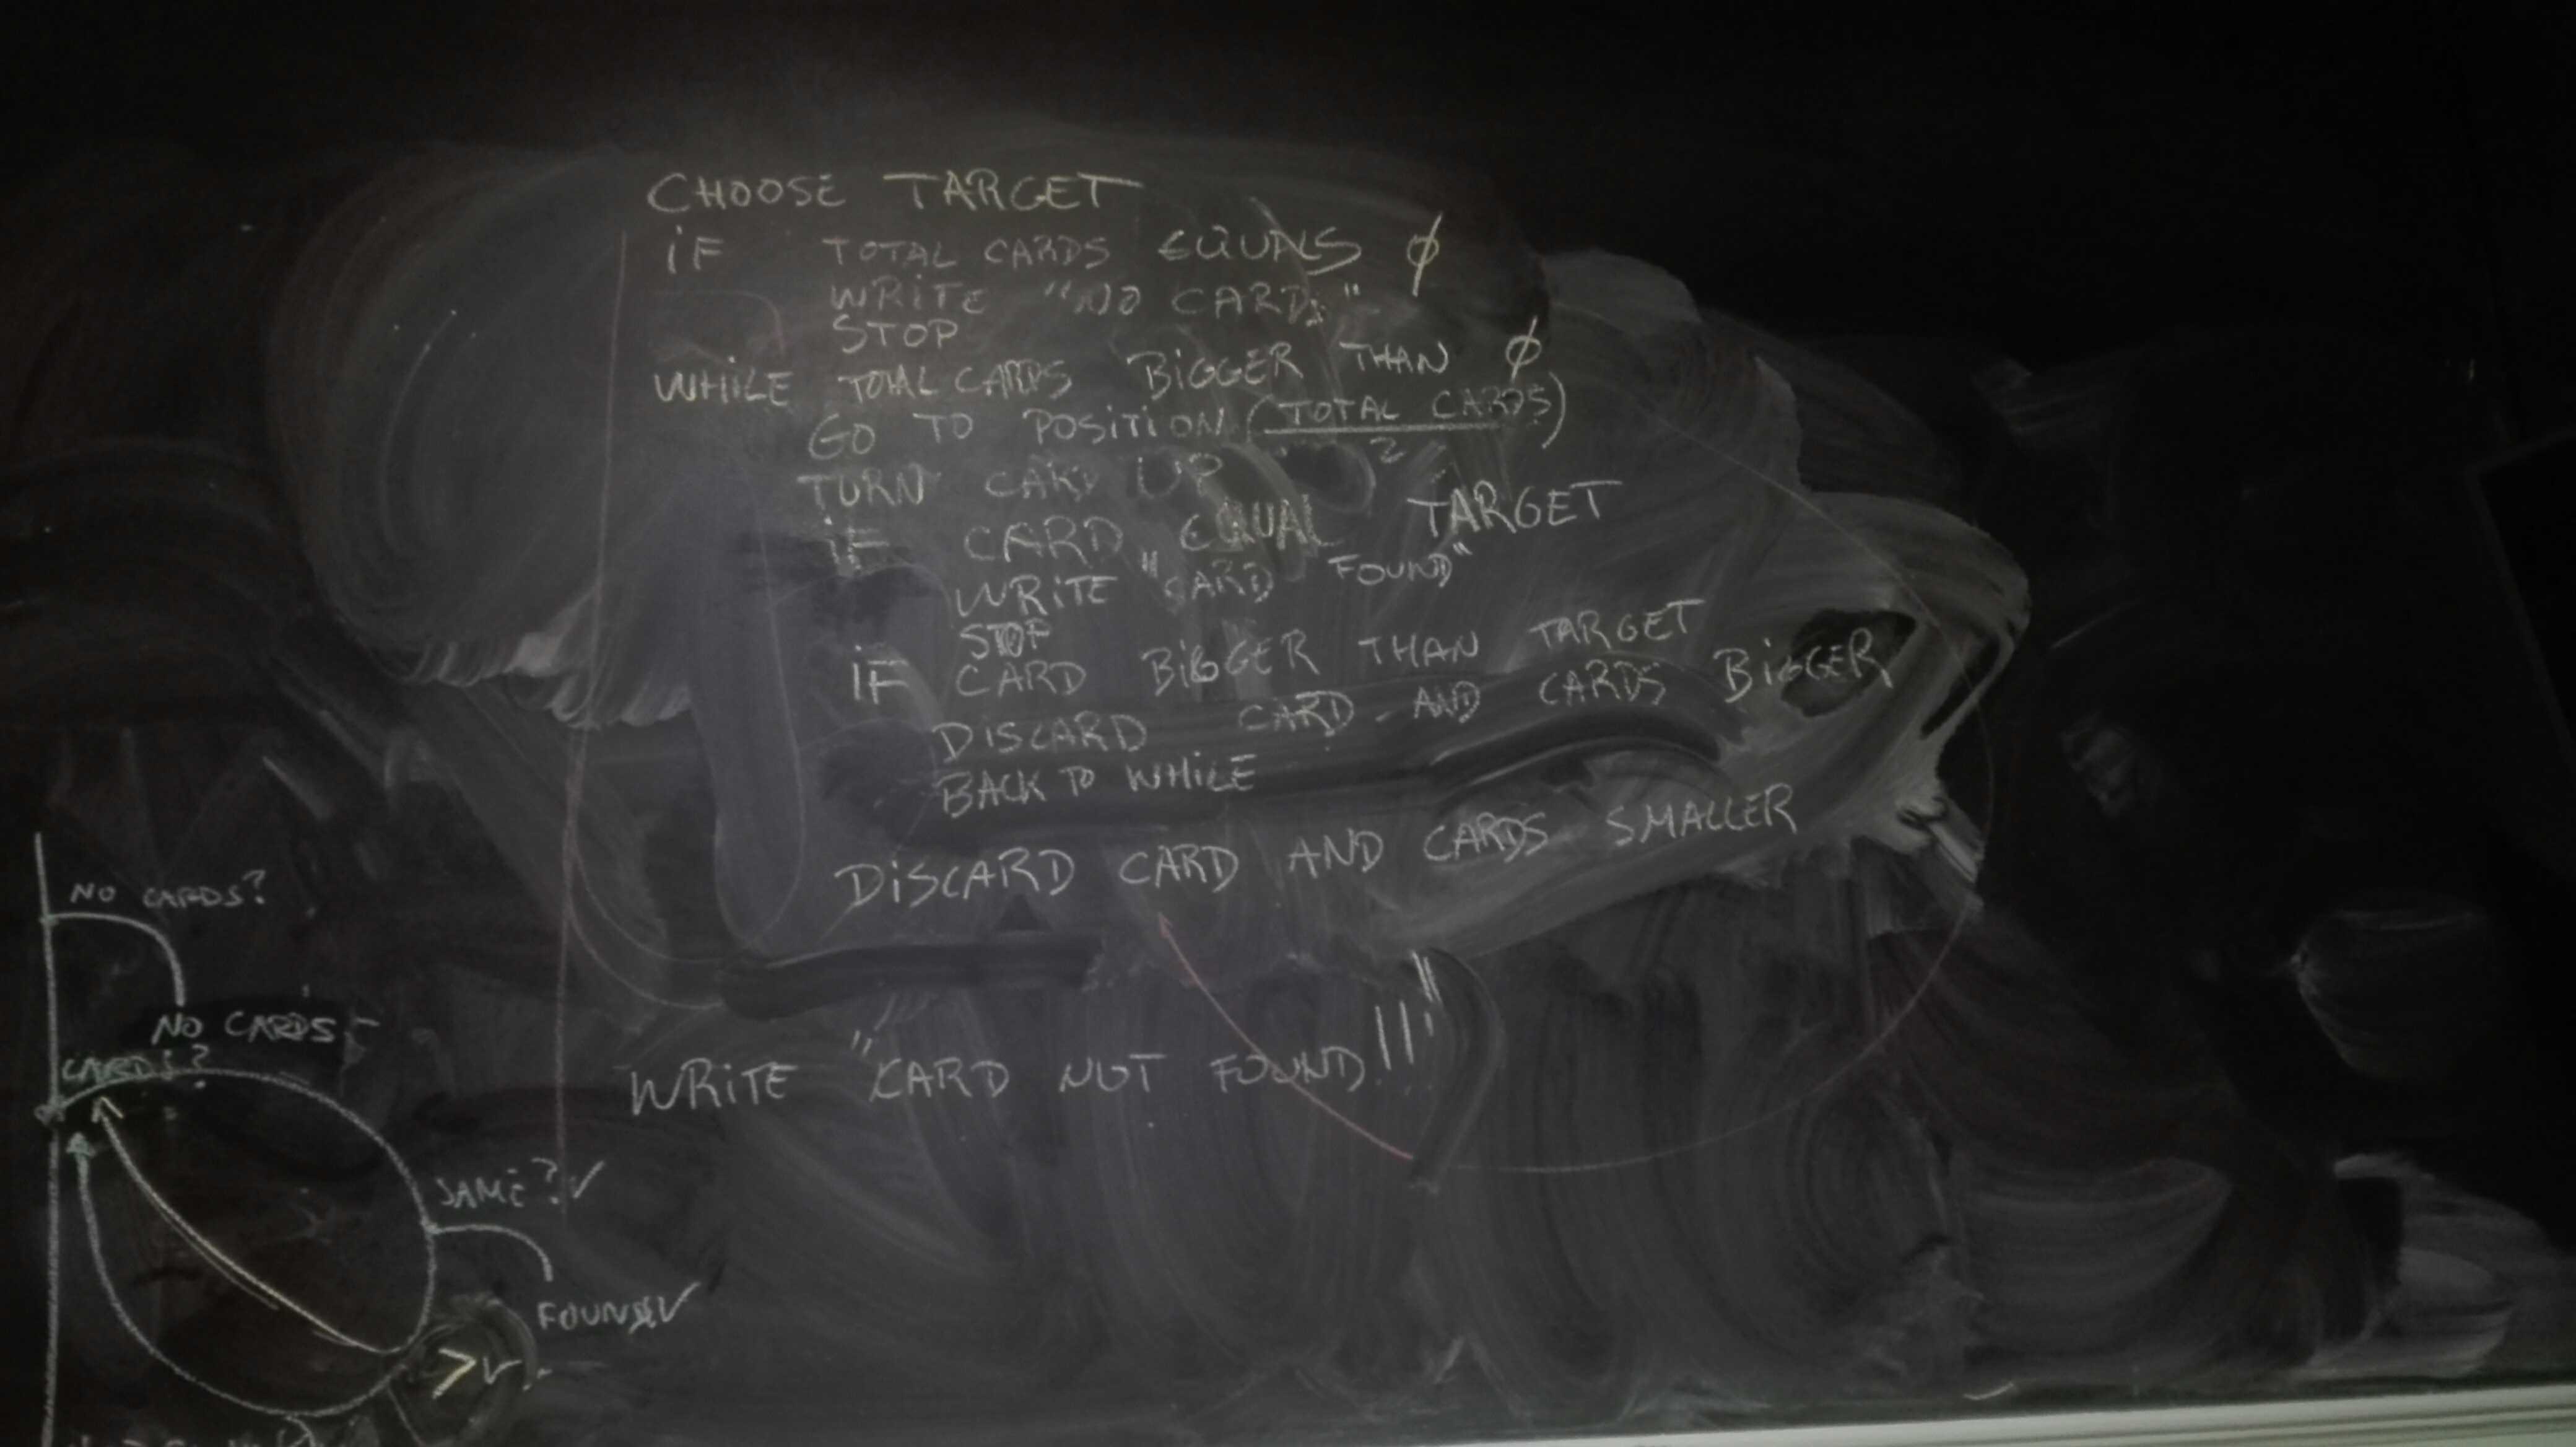 CHOOSE TARGET
iF TOTAL CARDS EQUALS ∅
WRiTE "NO CARDS"
STOP
WHiLE TOTAL CARDS BiGGER THAN ∅
GO TO POSiTiON (TOTAL CARDS)
2
TURN CARD UP
iF CARD EQUAL TARGET
WRiTE "CARD FOUND"
STOP
iF CARD BiGGER THAN TARGET
DiSCARD CARD AND CARDS BiGGER
BACK TO WHiLE
DiSCARD CARD AND CARDS SMALLER
WRiTE "CARD NOT FOUND!!!"
NO CARDS?
NO CARDS
CARDS?
SAME? ✓
FOUND ✓
>✓